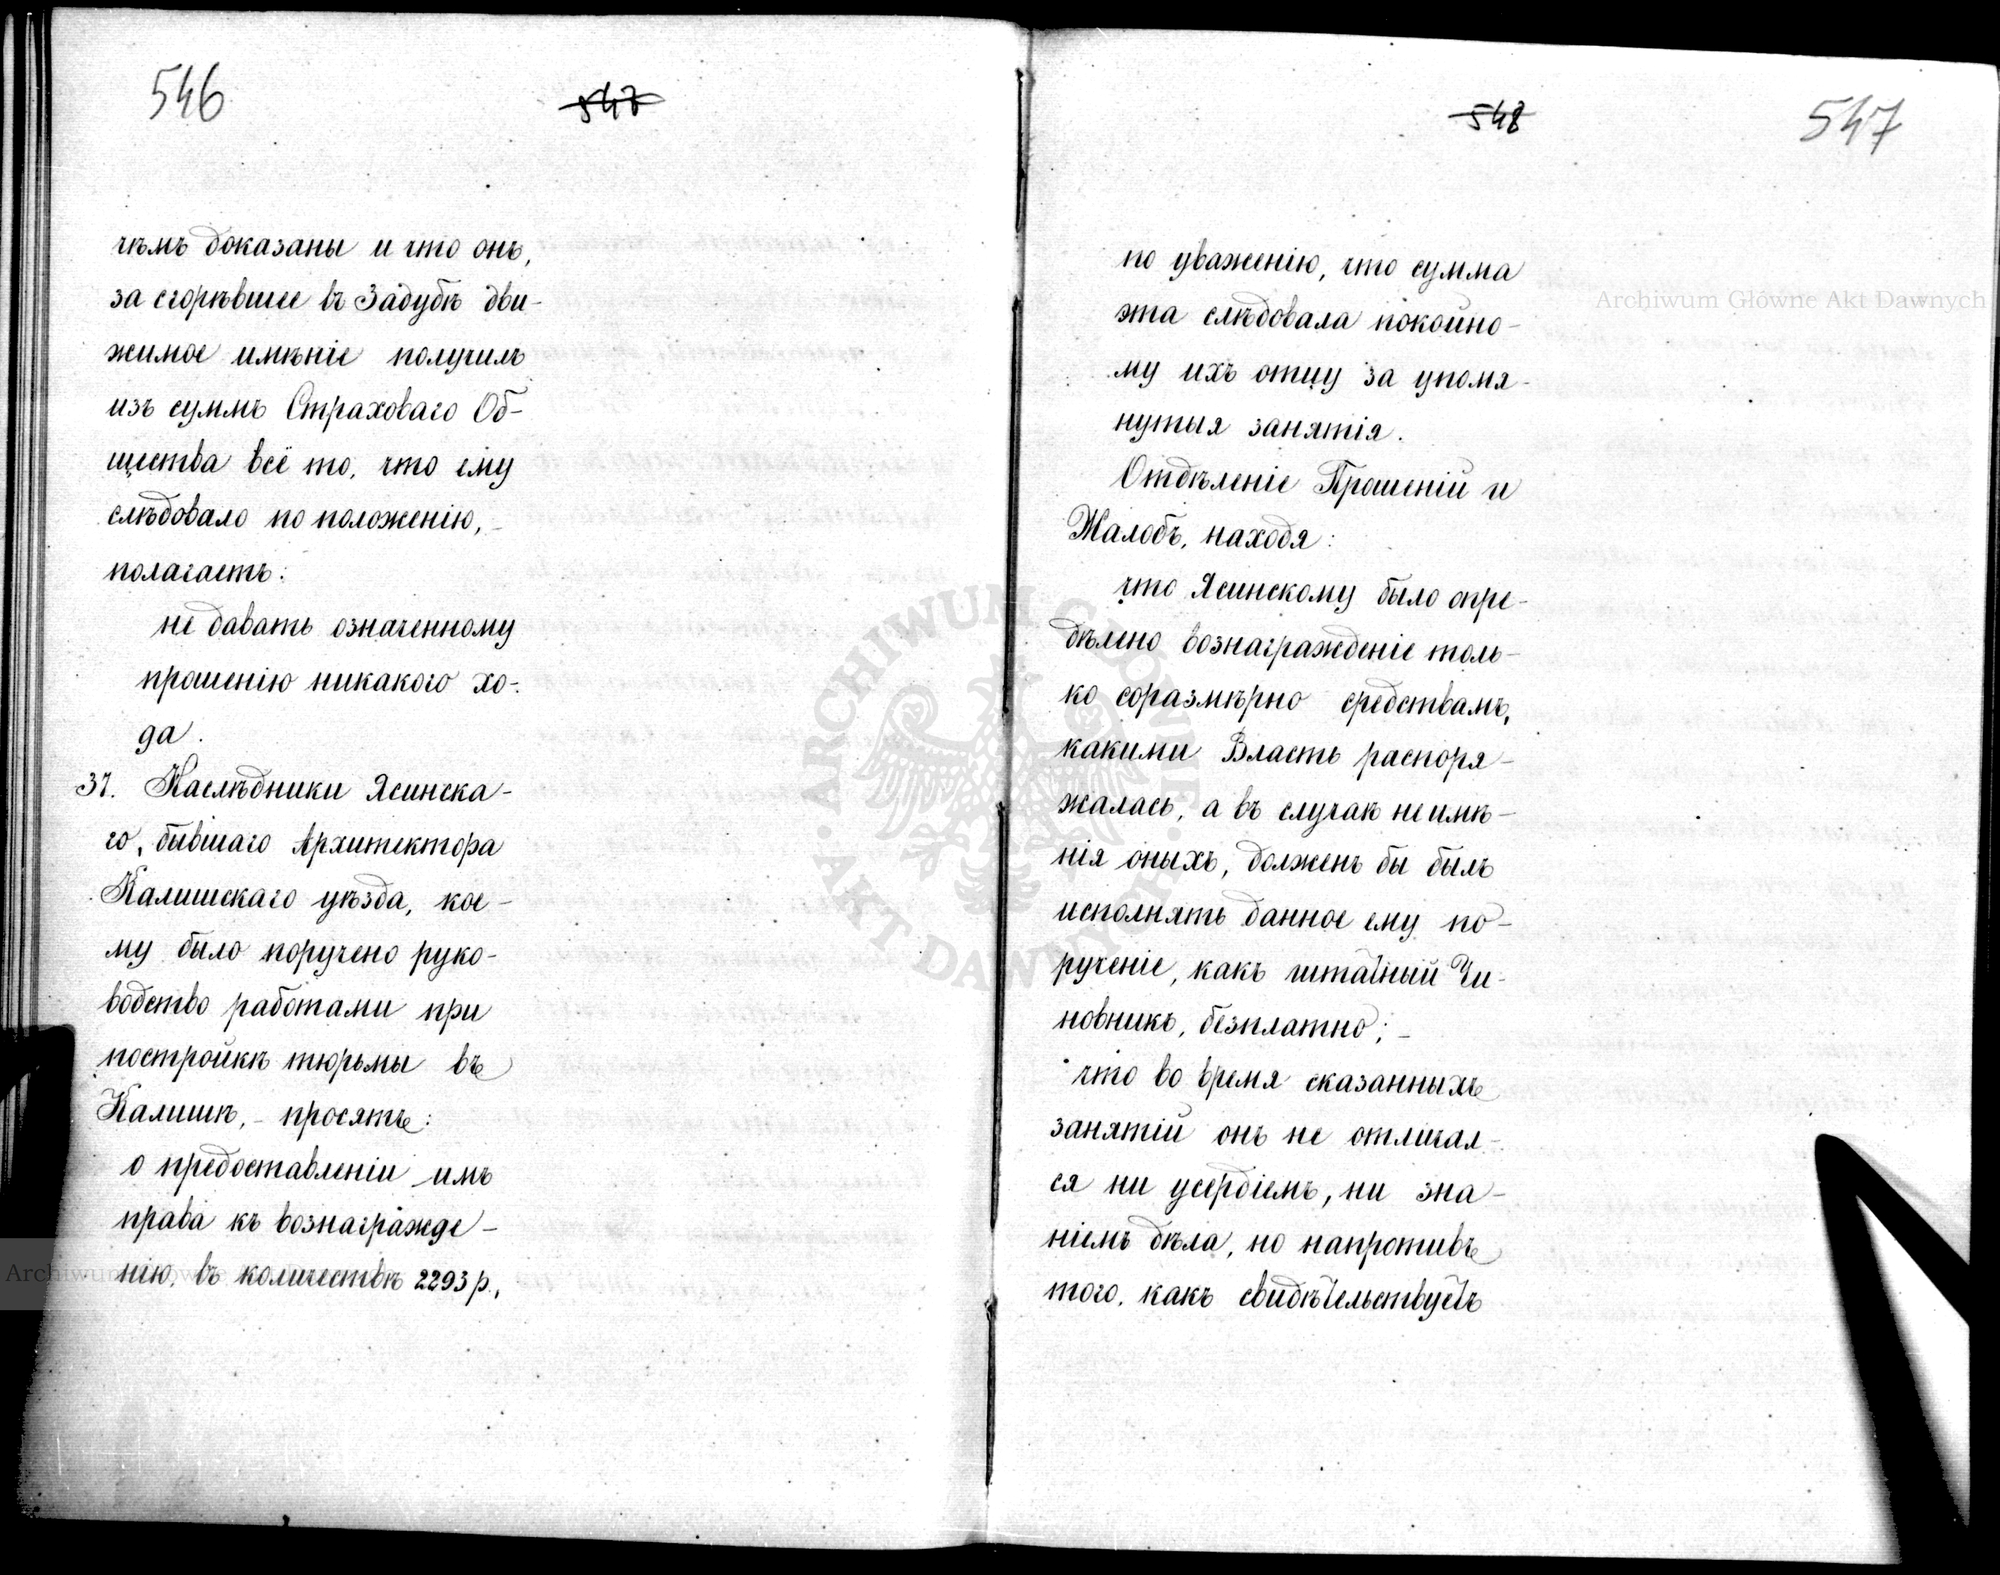 546
547
чѣмъ доказаны и что онъ,
за сгорѣвшее въ Задубѣ дви-
жимое имѣніе получилъ
изъ суммъ Страховаго Об-
щества всё то, что ему
слѣдовало по положенію, -
полагаетъ:
не давать означенному
прошенію никакого хо-
да.
37. Наслѣдники Ясинска-
го, бывшаго Архитектора
Калишскаго уѣзда, кое-
му было поручено руко-
водство работами при
постройкѣ тюрьмы въ
Калишѣ, - просятъ:
о предоставленіи имъ
права къ вознагражде-
нію, въ количествѣ 2293 р.,
548
547
по уваженію, что сумма
эта слѣдовала покойно-
му ихъ отцу за упомя-
нутыя занятія.
Отдѣленіе Прошеній и
Жалобъ, находя:
что Ясинскому было опре-
дѣлено вознагражденіе толь-
ко соразмѣрно средствамъ,
какими Власть распоря-
жалась, а въ случаѣ неимѣ-
нія оныхъ, долженъ бы былъ
исполнять данное ему по-
рученіе, какъ штатный Чи-
новникъ, безплатно; -
что во время сказанныхъ
занятій онъ не отличал-
ся ни усердіемъ, ни зна-
ніемъ дѣла, но напротивъ
того, какъ свидѣтельствуетъ
Archiwum Główne Akt Dawnych
ARCHIWUM GŁÓWNE AKT DAWNYCH
Archiwum Główne